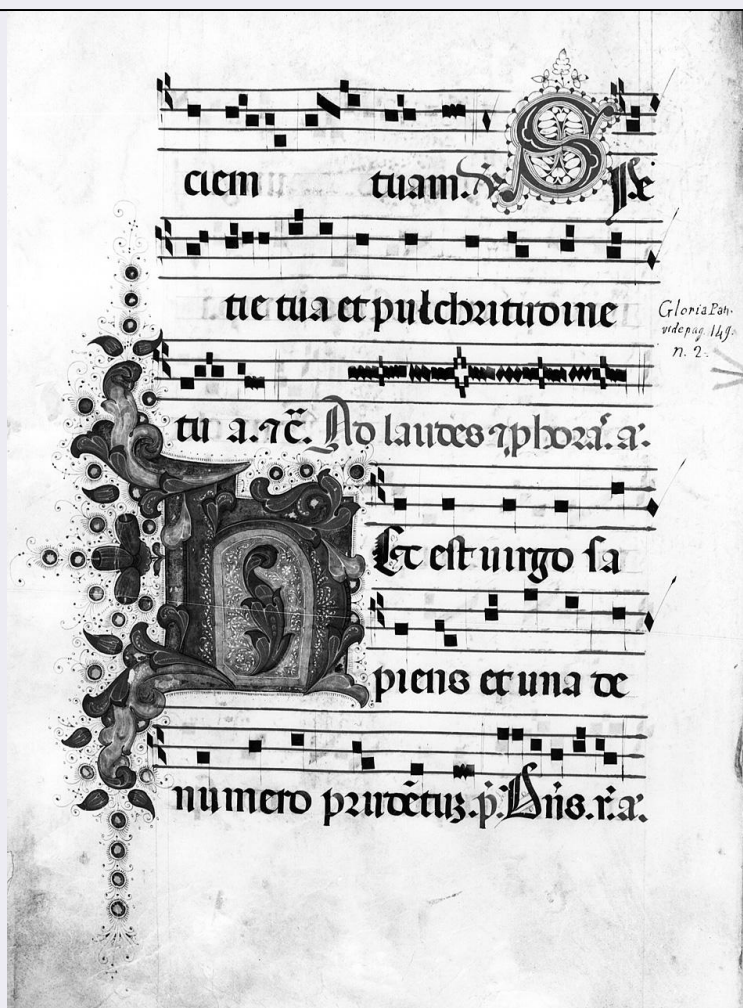 ciem tuam. ℣ Spe
tie tua et pulchritudine
tu a. ⁊ c̄. Ad laudes ⁊ p horas. a.
Hec est uirgo sa
piens et una de
numero prudētuꝫ. p̄. Dn̄s. r̄. a.
Gloria Pat.
vide pag. 149.
n. 2.